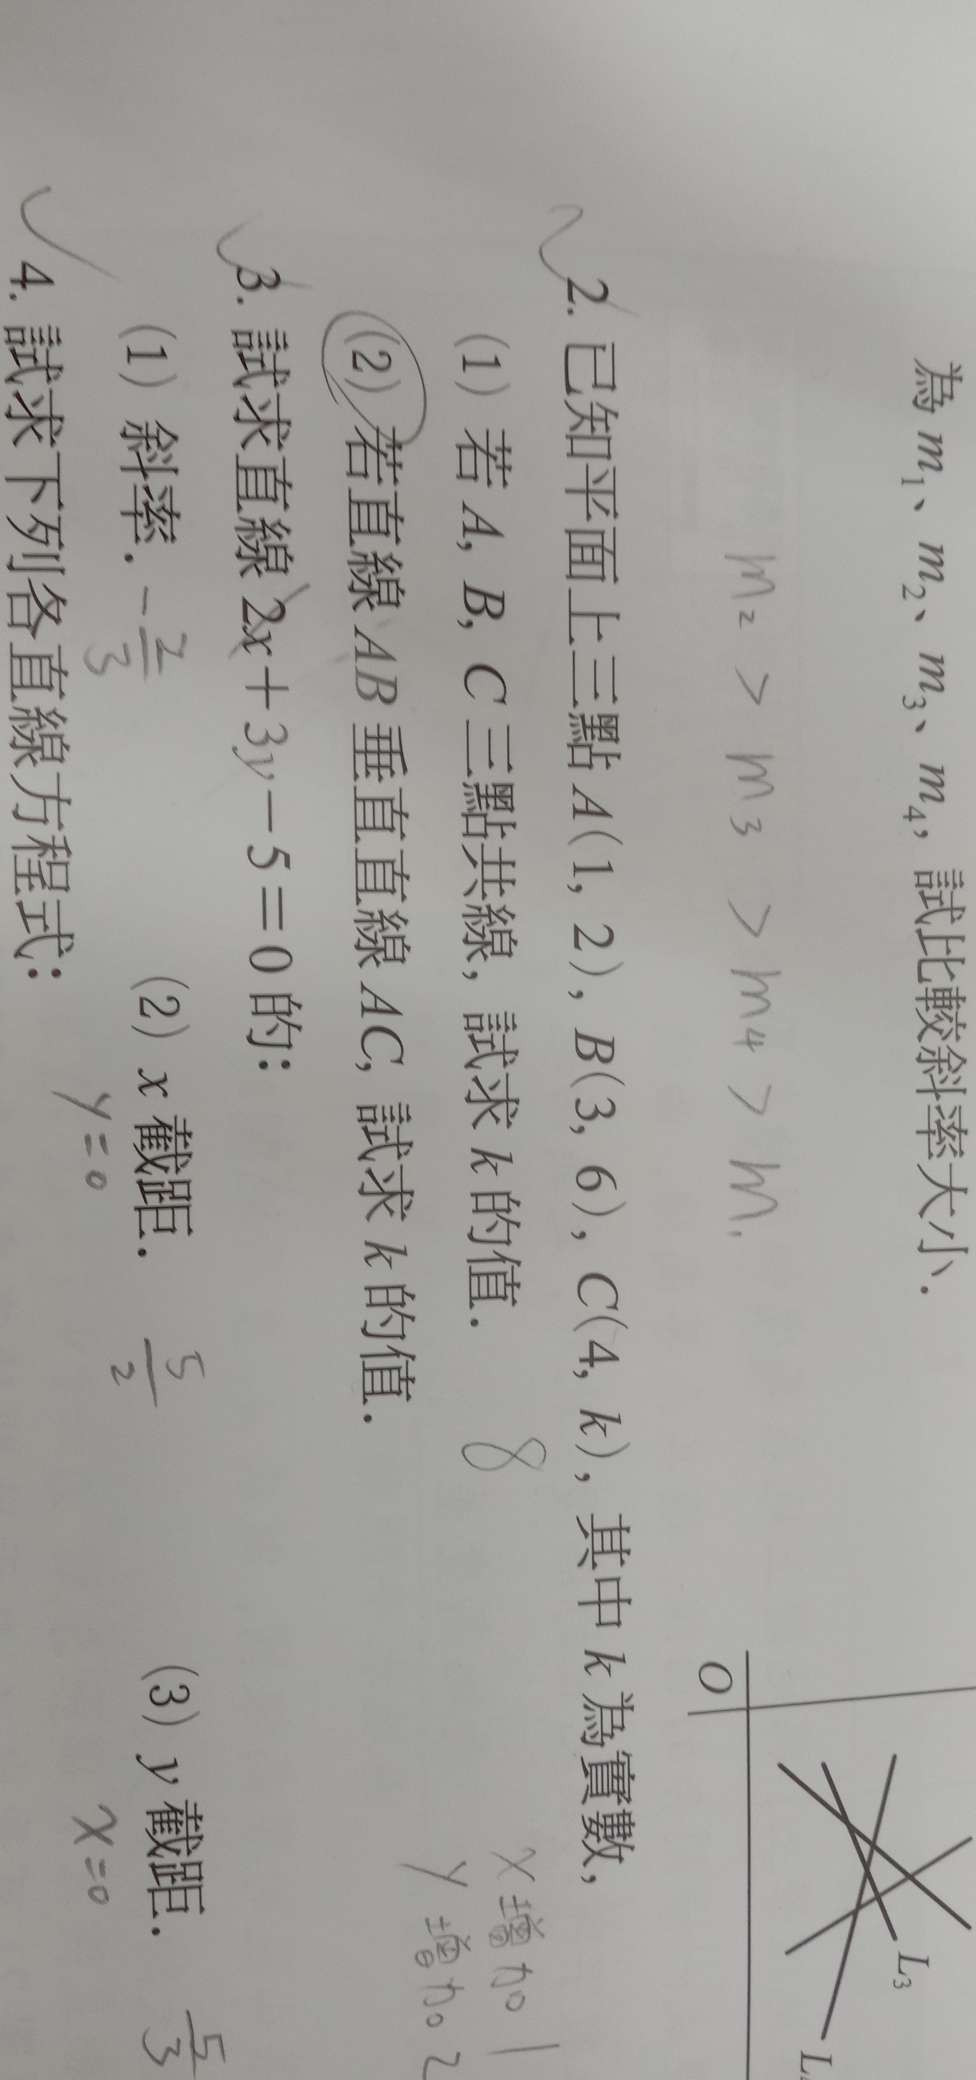 為 m₁、m₂、m₃、m₄, 試比較斜率大小.
m₂ > m₃ > m₄ > m₁
O
L₃
2. 已知平面上三點 A(1, 2), B(3, 6), C(4, k), 其中 k 為實數,
(1) 若 A, B, C 三點共線, 試求 k 的值. 8
x 增加 1
y 增加 2
(2) 若直線 AB 垂直直線 AC, 試求 k 的值.
3. 試求直線 2x+3y−5=0 的:
(1) 斜率. −2/3 (2) x 截距. 5/2 (3) y 截距. 5/3
y=0 x=0
4. 試求下列各直線方程式: